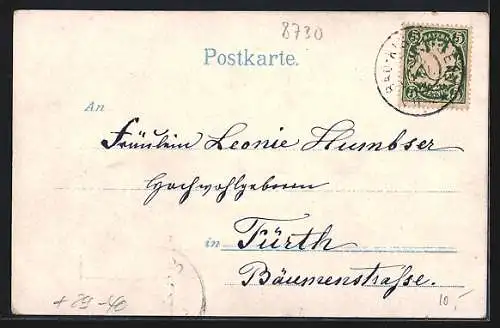 8730
Postkarte.
BAYERN
5 5
5 PFENNIG 5
BAD KI
An
Fräulein Leonie Humbser
Hochwohlgeboren
in Fürth
Bäumenstraße.
10,-